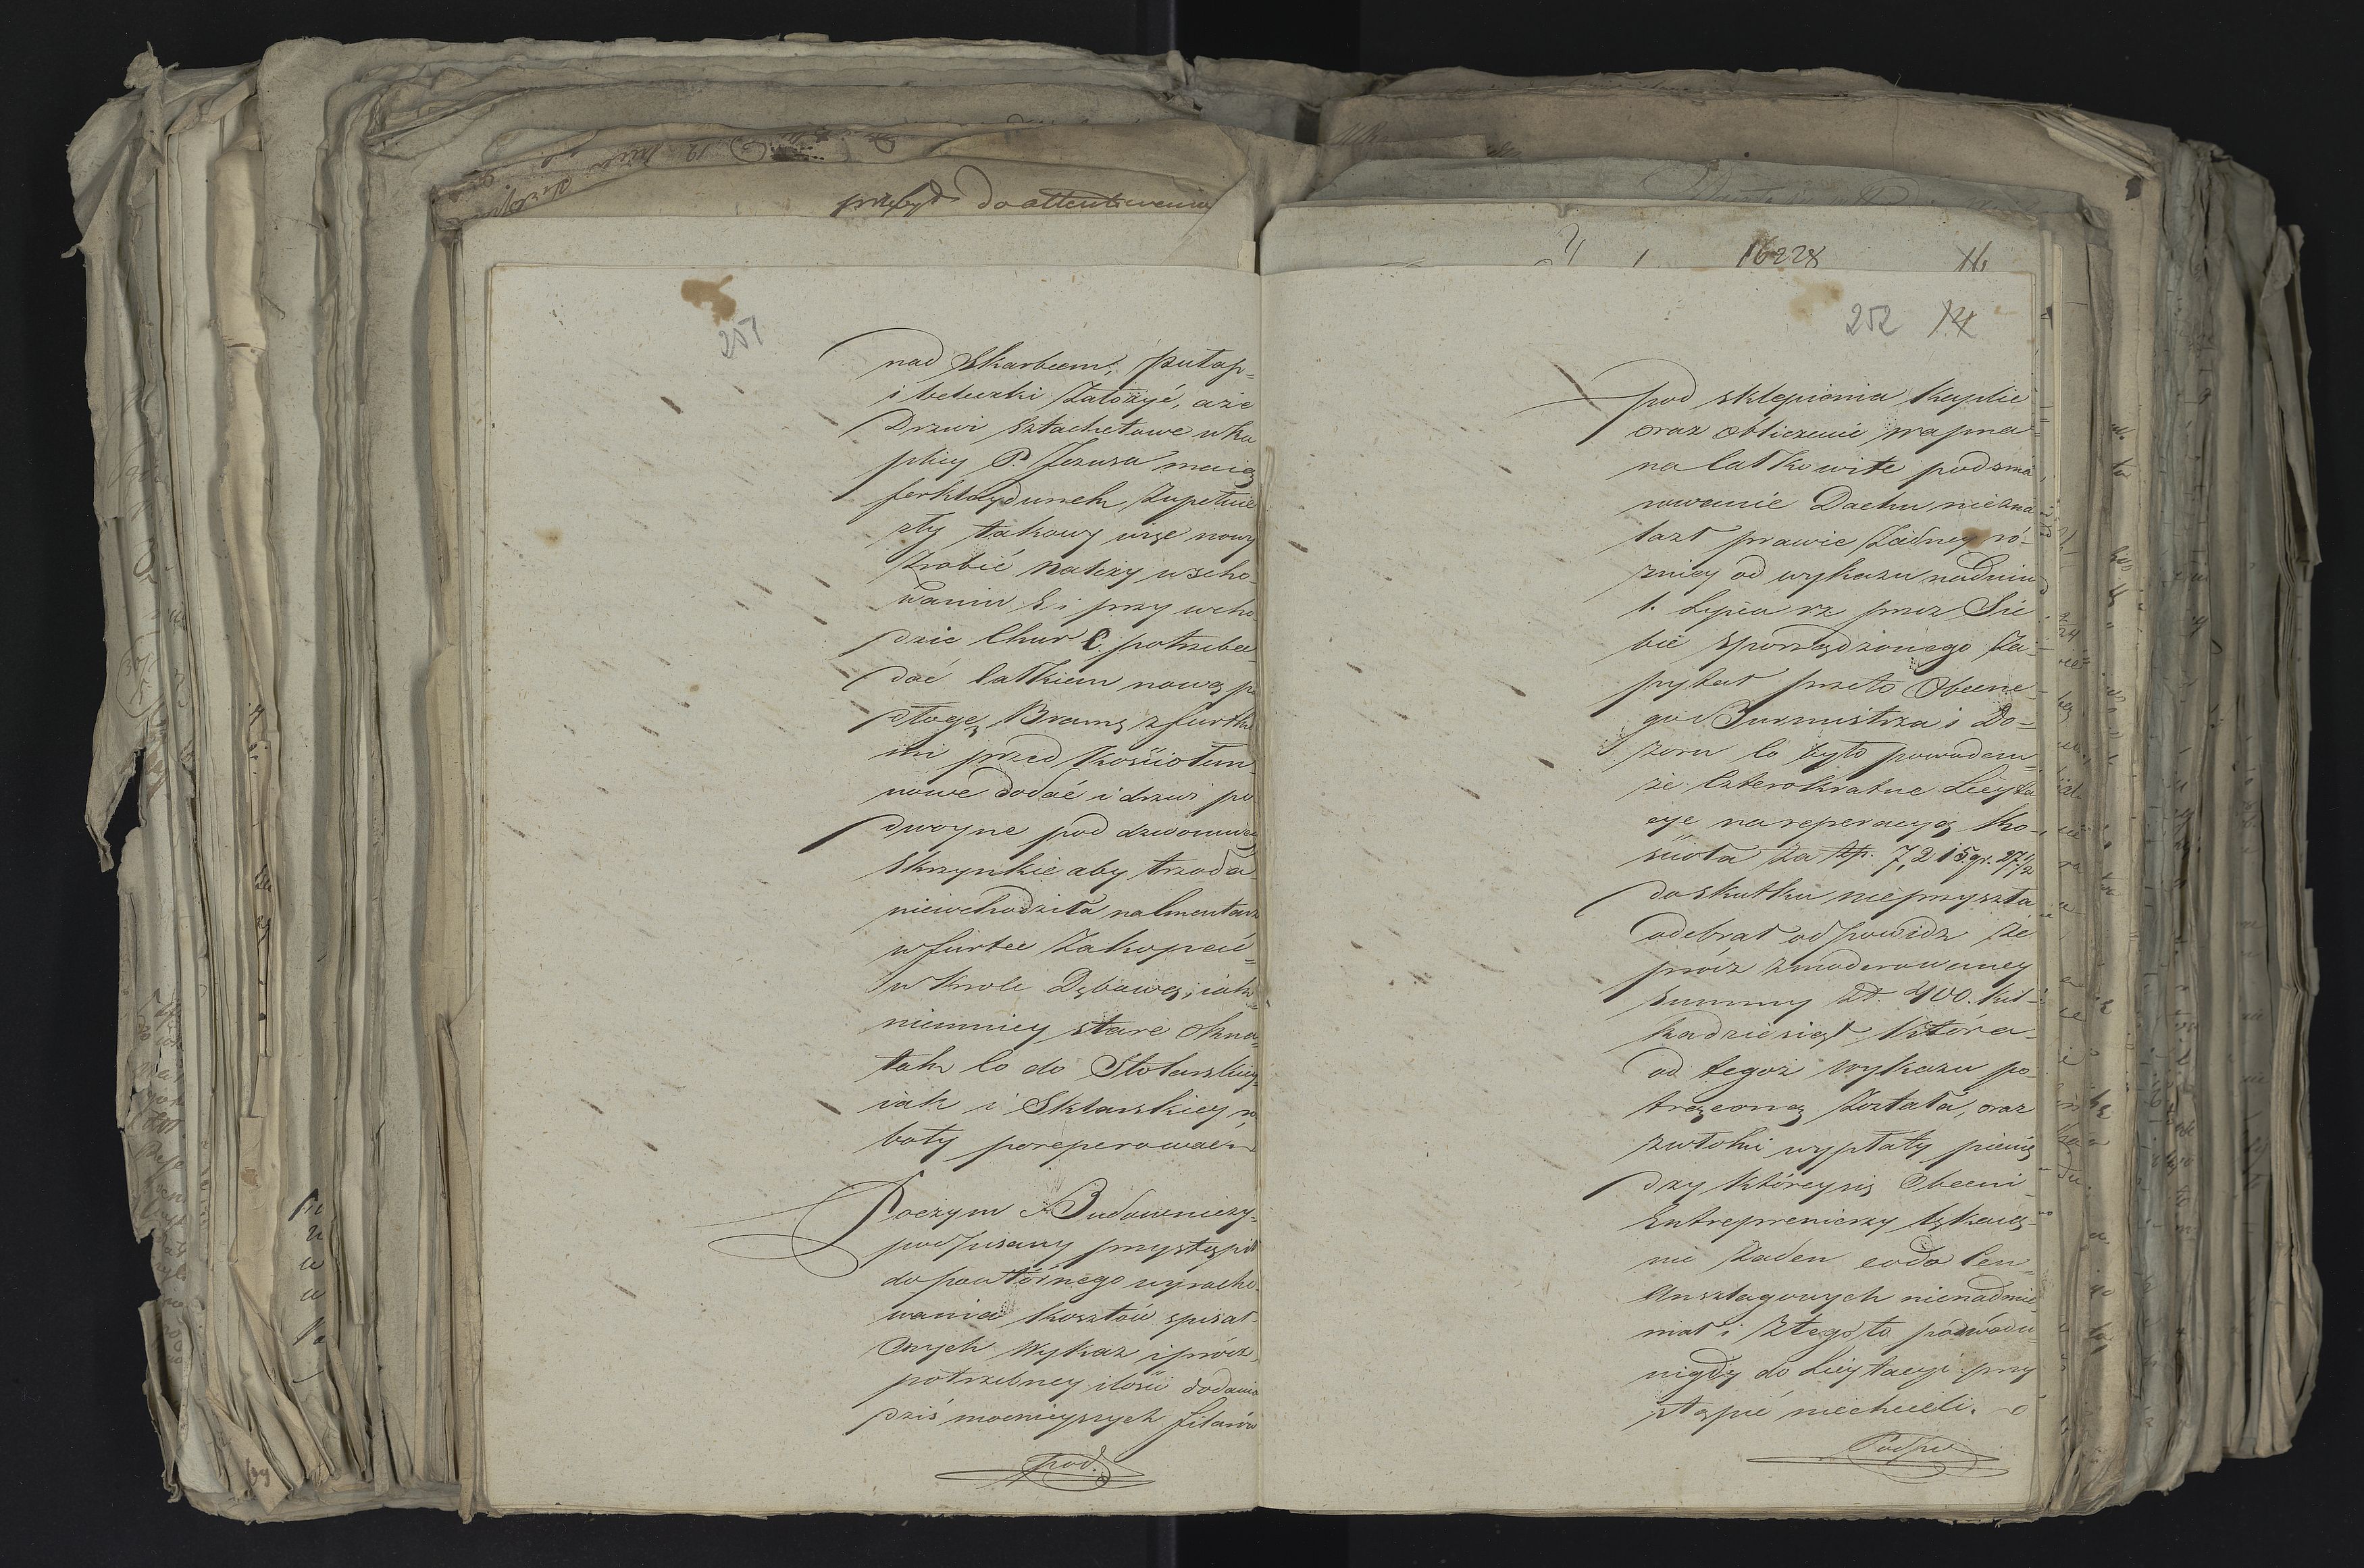 przybył do attentowania
251
nad Skarbcem, putap=
i beleczki Założyć, aże
Drzwi Sztachetowe w ka
plicy P. Jezusa maią
zupełnie
zły takowy więc nowy
Zrobić należy w scho-
waniu S i przy wcho-
dzie Chur C. potrzeba
dać całkiem nową po
dłogę, Bramę z furtka
mi przed Kościołem
nowe dodać i drzwi po
dwoyne pod dzwonnicą
Skrzynkie aby trzoda
niewchodziła na Cmentarz
w furtce Zakopać=
Dębową, iak
niemniey stare Okna=
tak co do Stolarskiey
iak i Sklarskiey ro
boty poreperować
Poczym Budowniczy=
podpisany przystąpił
do powtórnego wyracho-
wania kosztów spisał
Onych Wykaz i prócz
potrzebney ilości dodania
dziś mocnieyszych filarów
pod.
16228
252 14
pod sklepienia Kaplic
oraz obliczenie wapna=
na całkowite podsma
rowanie Dachu nie zna
lazł prawie żadney ró-
żnicy od wykazu na dniu
1. Lipca rz przez Sie
bie sporządzonego Za-
pytał przeto Obecne-
go Burmistrza i Do=
zoru co było powodem
że Czterokratne Licyta
cye na reperacyą Ko-
ścioła za zp. 7,215 gr. 27 1/2
do skutku nieprzyszła
odebrał odpowiedz że
prócz zmoderowaney
Summy Zł. 400. kil-
kadziesiąt która
od tegoż Wykazu po-
trąconą Została, oraz
zwłoki wypłaty pienię
dzy którey się Obecni
Entreprenierzy lękaią
nie żaden co do Cen=
Anszlagowych nienadmie
niał i z tego to powodu
nigdy do Licytacyi przy
stąpić niechcieli.
Podpis